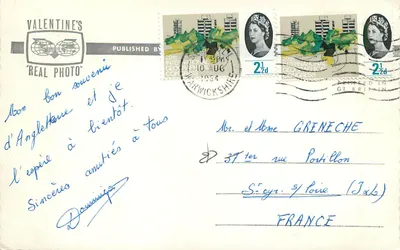 VALENTINE'S
"REAL PHOTO"
PUBLISHED BY
10 AUG
1964
WARWICKSHIRE
2½d
2½d
Mon bon souvenir
d'Angleterre et je
l'espère à bientôt.
Sincères amitiés à tous
Dominique
Mr. et Mme GRENECHE
31ter rue Portillon
St-cyr s/Loire (I&L)
FRANCE